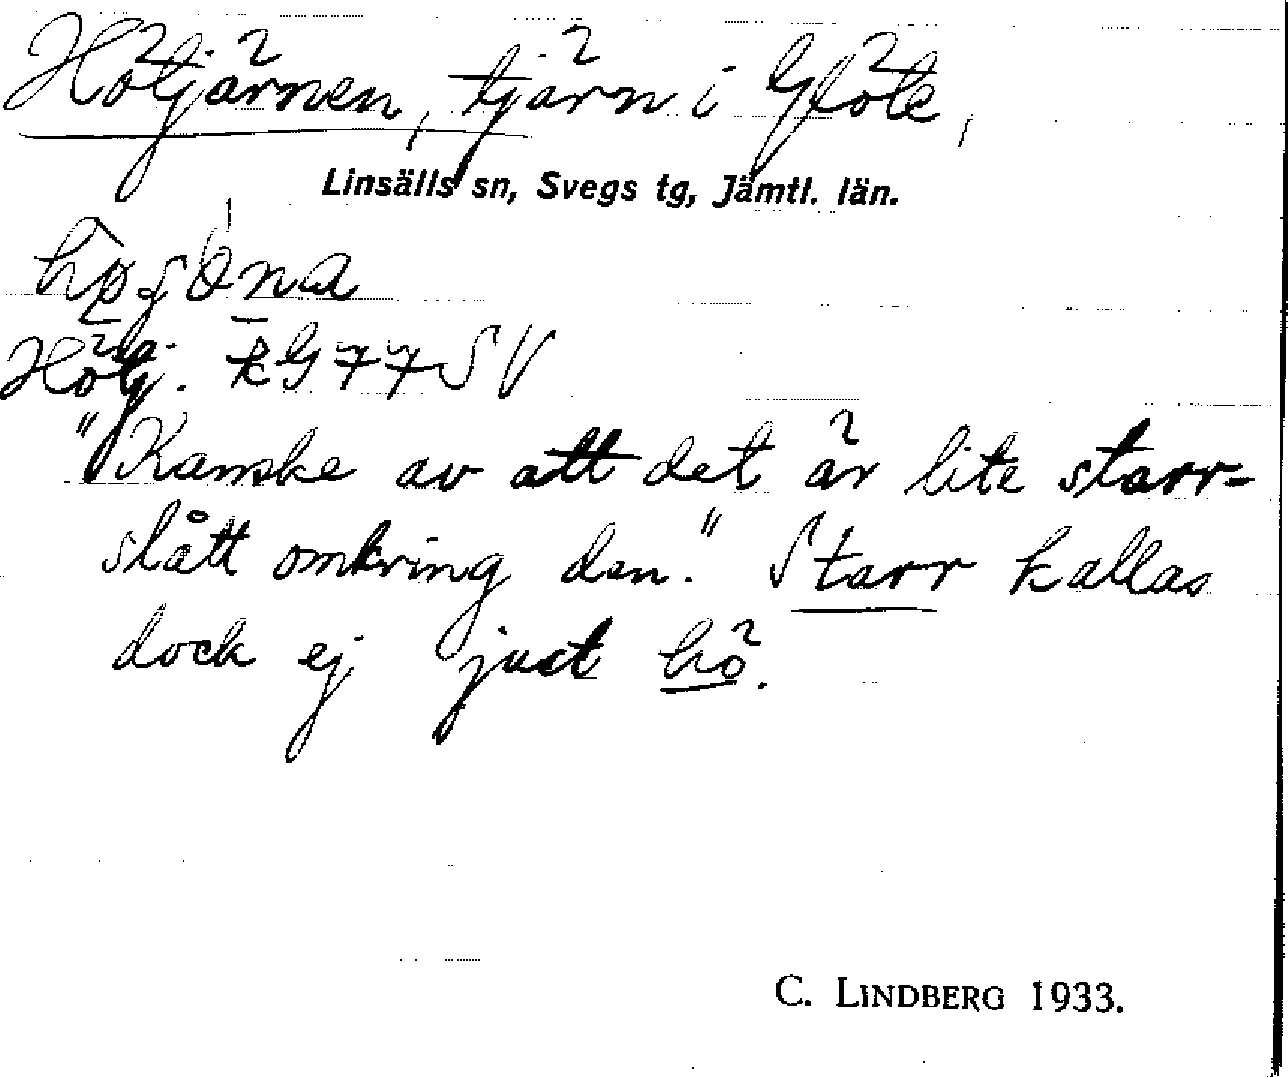 Hötjärnen, tjärn i Glöte,
Linsälls sn, Svegs tg, Jämtl. län.
Hötj. RG77SV
"Kanske av att det är lite starr-
slått omkring den." Starr kallas
dock ej just hö.
C. LINDBERG 1933.